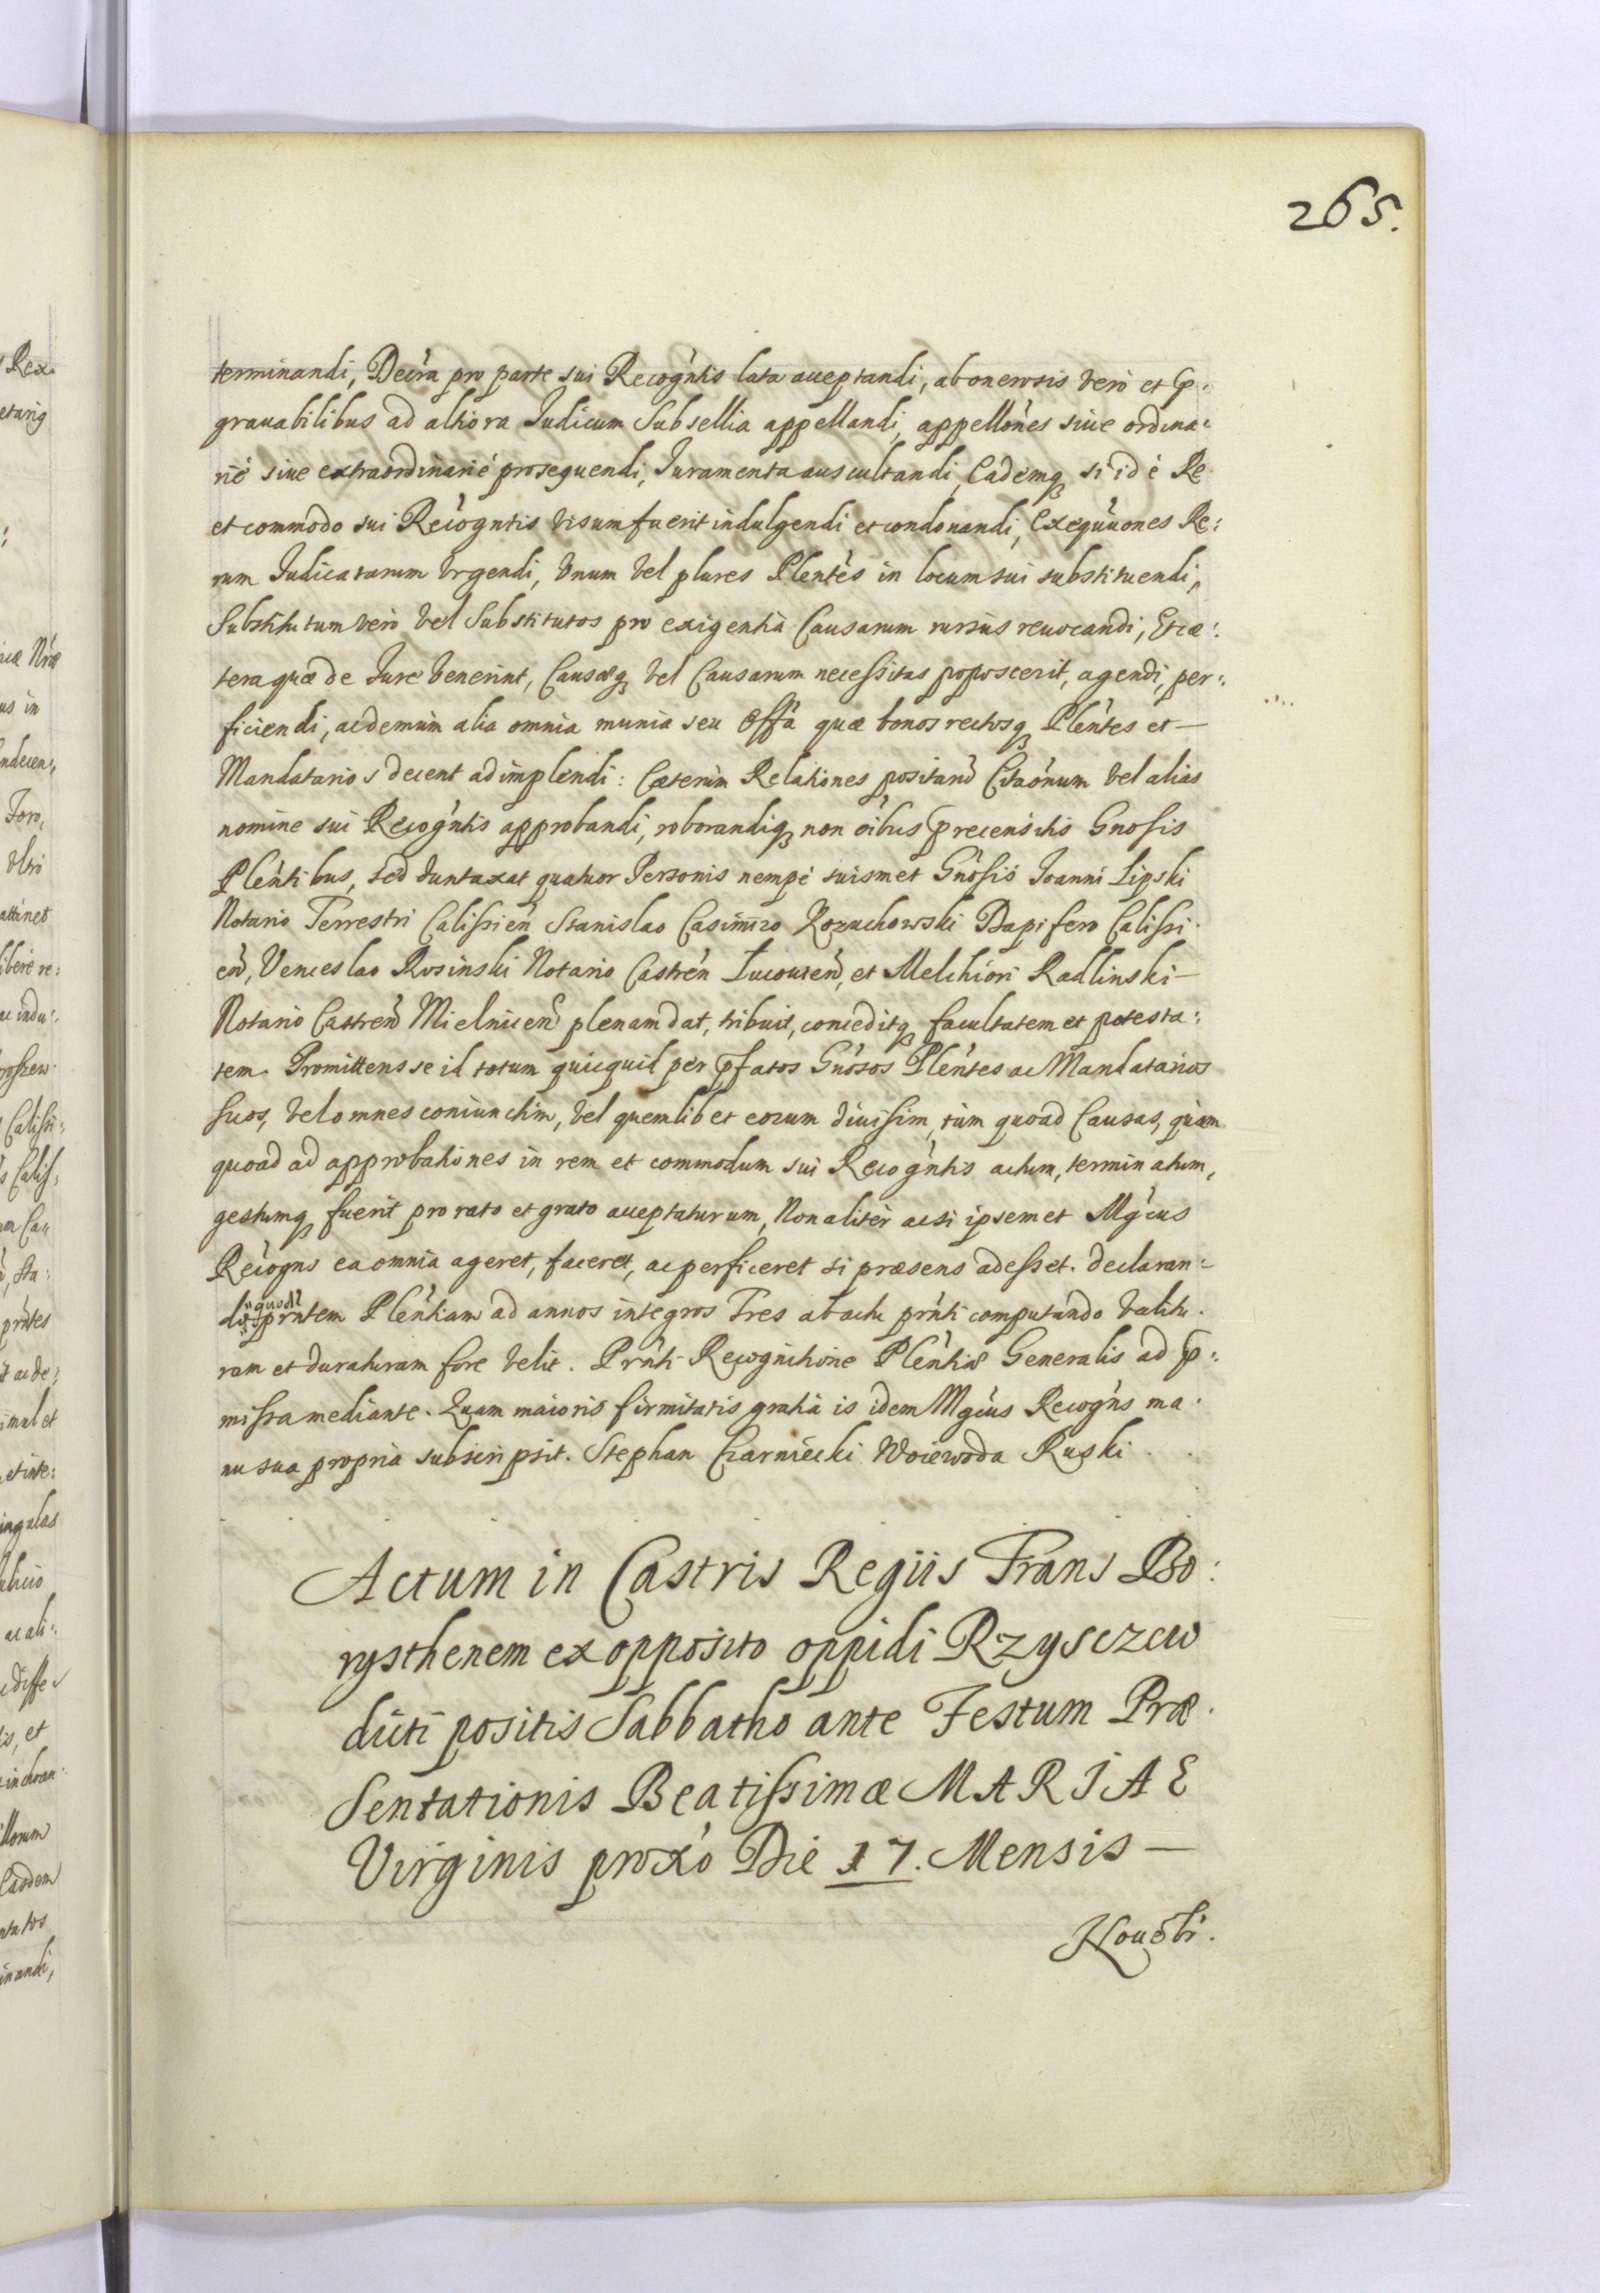 265.
terminandi, Decra pro parte sui Recogntis lata acceptandi, ab onerosis vero et p:
grauabilibus ad altiora Iudicum Subsellia appellandi, appellones siue ordina:
rie siue extraordinarie prosequendi, Iuramenta auscultandi, Eademq si id e Re
et commodo sui Recogntis visum fuerit indulgendi et condonandi, Exequuones Re:
rum Iudicatarum Vrgendi, Vnum Vel plures Plentes in locum sui substituendi,
Substitutum vero Vel Substitutos pro exigentia Causarum rursus reuocandi, Et cæ:
tera quæ de Iure Venerint, Causæq Vel Causarum necessitas poposcerit, agendi, per:
ficiendi, ac demum alia omnia munia seu Offa quæ bonos rectosq Plentes et —
Mandatarios decent adimplendi: Cæterum Relationes positaru Citaonum Vel alias
nomine sui Recogntis approbandi, roborandiq non oibus precensitis Gnosis
Plentibus, sed duntaxat quatuor Personis nempe suismet Gnosis Ioanni Lipski
Notario Terrestri Calissien Stanislao Casimiro Kozuchowski Dapifero Calissi:
en, Venceslao Rosinski Notario Castren Lucouien, et Melchiori Radlinski —
Notario Castren Mielnicen plenam dat, tribuit, conceditq facultatem et potesta:
tem. Promittens se id totum quicquid per pfatos Gnosos Plentes ac Mandatarios
suos, Vel omnes coniunctim, Vel quemlibet eorum diuisim, tum quoad Causas, quam
quoad ad approbationes in rem et commodum sui Recogntis actum, terminatum,
gestumq fuerit pro rato et grato accepturum, Non aliter ac si ipsemet Mgcus
Recogns ea omnia ageret, faceret, ac perficeret si præsens adesset. declaran:
do quod prntem Plentiam ad annos integros Tres ab actu prnti computando Valitu:
ram et duraturam fore Velit. Prnti Recognitione Plentiæ Generalis ad p:
missa mediante. Quam maioris firmitatis gratia is idem Mgcus Recogns ma:
nu sua propria subscripsit. Stephan Czarniecki Woiewoda Ruski.
Actum in Castris Regiis Trans Bo:
rysthenem ex opposito oppidi Rzysczew
dicti positis Sabbatho ante Festum Præ:
sentationis Beatissimæ MARIAE
Virginis proxo Die 17. Mensis —
Nouobr.